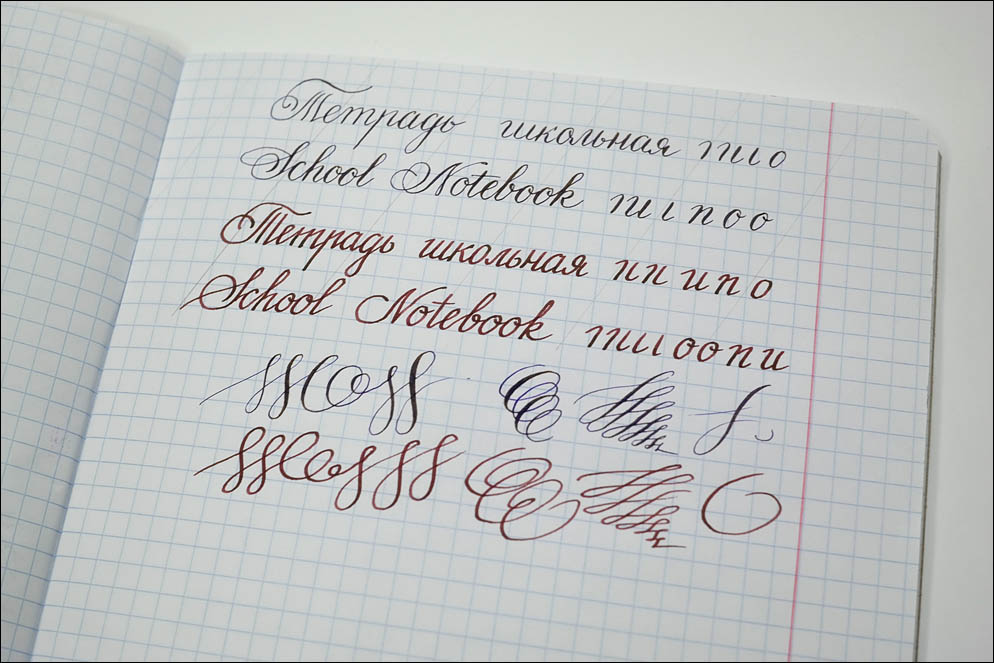 Тетрадь школьная тио
School Notebook тı поо
Тетрадь школьная ип ипо
School Notebook тиıоопи